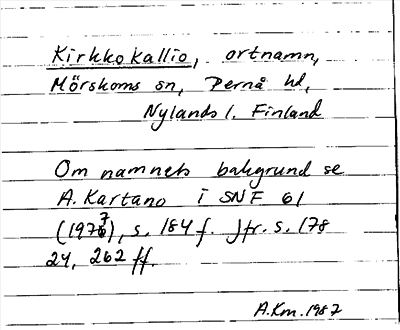 Kirkkokallio, ortnamn,
Mörskoms sn, Pernå hd,
Nylands l. Finland
Om namnets bakgrund se
A. Kartano i SNF 61
(1977), s. 184 f. Jfr. s. 178
24, 262 ff.
A.Km. 1987